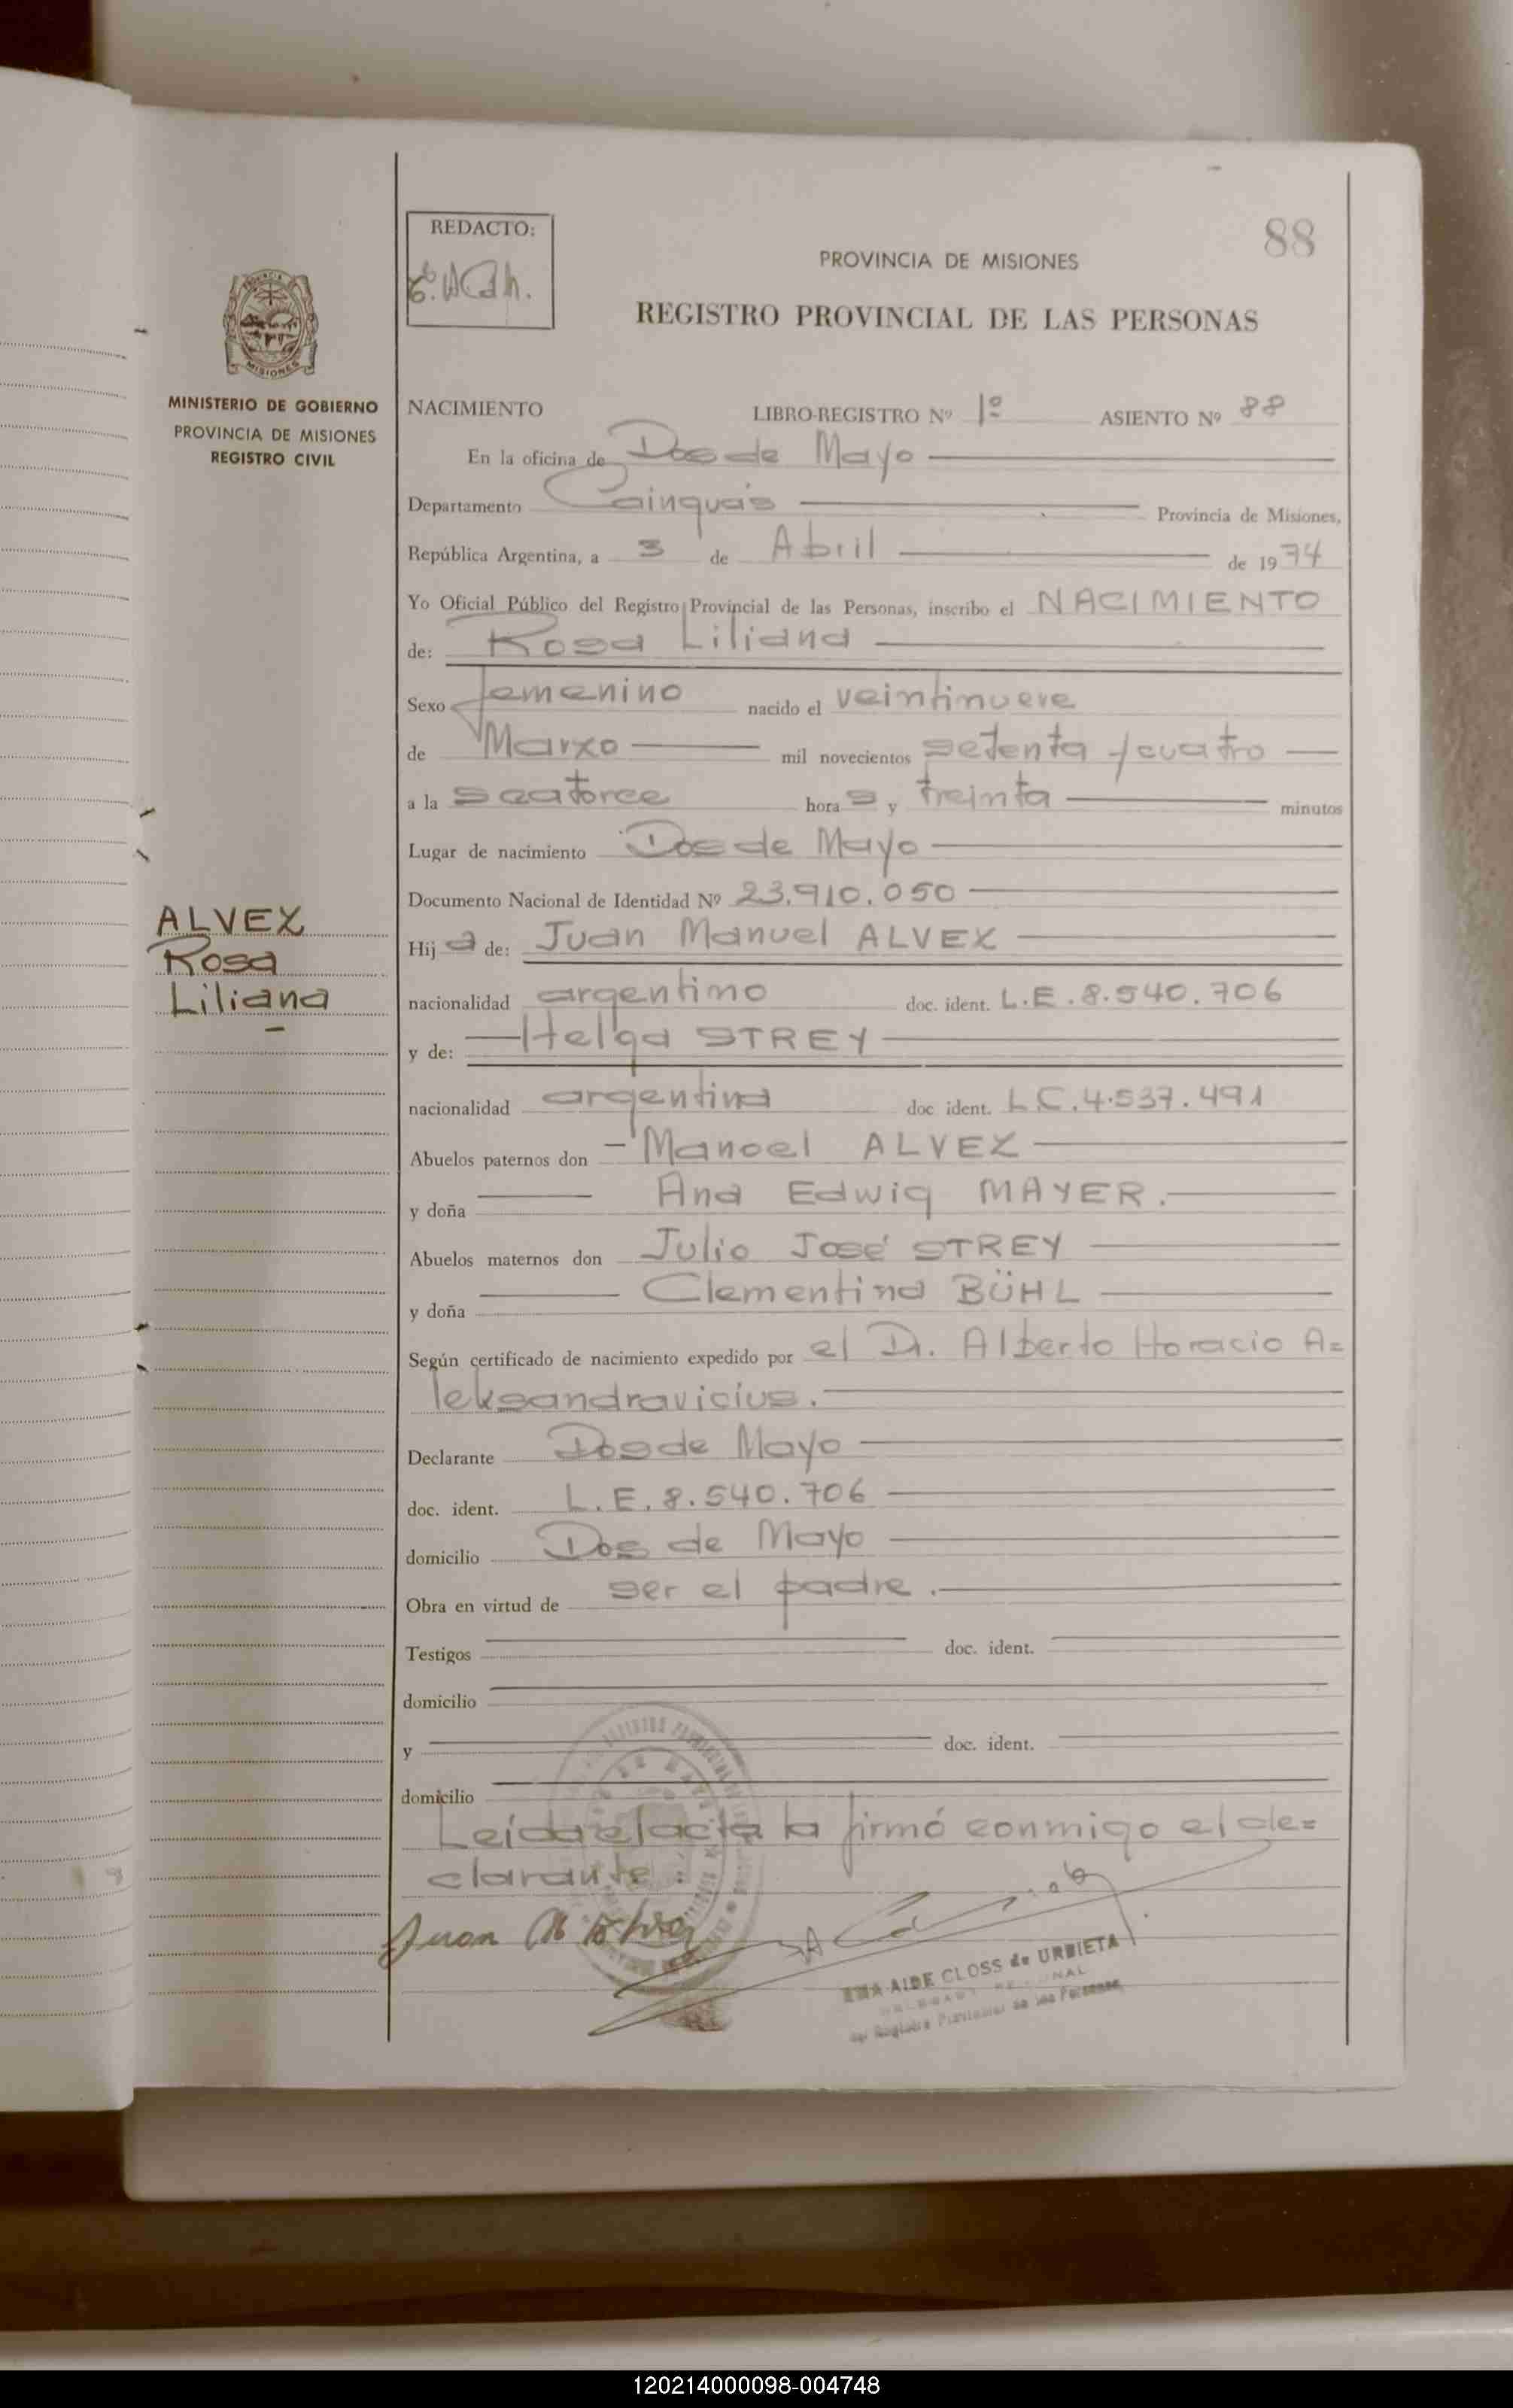 88
REDACTO:
PROVINCIA DE MISIONES
REGISTRO PROVINCIAL DE LAS PERSONAS
MISIONES
MINISTERIO DE GOBIERNO
PROVINCIA DE MISIONES
REGISTRO CIVIL
ALVEZ
Rosa
Liliana
NACIMIENTO LIBRO-REGISTRO Nº 1º ASIENTO Nº 88
En la oficina de Dos de Mayo
Departamento Cainguás Provincia de Misiones,
República Argentina, a 3 de Abril de 1974
Yo Oficial Público del Registro Provincial de las Personas, inscribo el NACIMIENTO
de: Rosa Liliana
Sexo femenino nacido el veintinueve
de Marzo mil novecientos setenta y cuatro
a la s catorce hora s y treinta minutos
Lugar de nacimiento Dos de Mayo
Documento Nacional de Identidad Nº 23.910.050
Hij a de: Juan Manuel ALVEZ
nacionalidad argentino doc. ident. L.E.8.540.706
y de: Helga STREY
nacionalidad argentina doc ident. L.C.4.537.491
Abuelos paternos don Manoel ALVEZ
y doña Ana Edwig MAYER.
Abuelos maternos don Julio José STREY
y doña Clementina BÜHL
Según certificado de nacimiento expedido por el Dr. Alberto Horacio A=
leksandravicius.
Declarante Dos de Mayo
doc. ident. L.E.8.540.706
domicilio Dos de Mayo
Obra en virtud de ser el padre.
Testigos doc. ident.
domicilio
y doc. ident.
domicilio
Leída el acta la firmó conmigo el de=
clarante.
Juan M Alvez
AIDE CLOSS de URBIETA
del Registro Provincial de las Personas
120214000098-004748